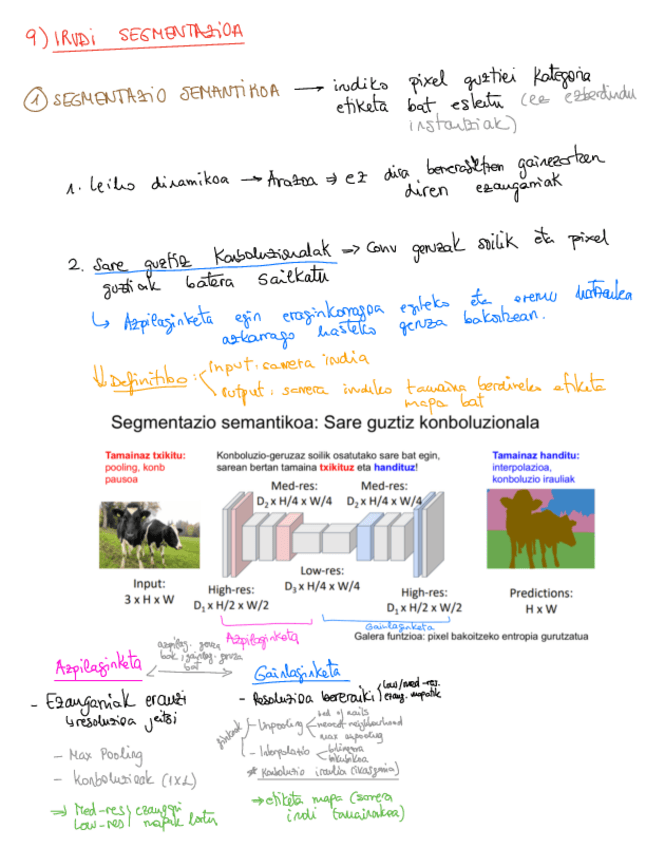 9) IRUDI SEGMENTAZIOA
① SEGMENTAZIO SEMANTIKOA → irudiko pixel guztiei kategoria
etiketa bat esleitu (ez ezberdindu
instantziak)
1. Leiho dinamikoa → Arazoa ⇒ ez dira berrerabiltzen gainezartzen
diren ezaugarriak
2. Sare guztiz Konboluzionalak ⇒ Conv geruzak soilik eta pixel
guztiak batera sailkatu
↳ Azpilaginketa egin eraginkorragoa egiteko eta eremu hartzailea
azkarrago hasteko geruza bakoitzean.
↓ Definitibo: Input: sarrera irudia
output: sarrera irudiko tamaina berdineko etiketa
mapa bat
Segmentazio semantikoa: Sare guztiz konboluzionala
Tamainaz txikitu:
pooling, konb
pausoa
Konboluzio-geruzaz soilik osatutako sare bat egin,
sarean bertan tamaina txikituz eta handituz!
Tamainaz handitu:
interpolazioa,
konboluzio irauliak
Med-res:
D₂ x H/4 x W/4
Med-res:
D₂ x H/4 x W/4
Low-res:
D₃ x H/4 x W/4
Input:
3 x H x W
High-res:
D₁ x H/2 x W/2
High-res:
D₁ x H/2 x W/2
Predictions:
H x W
Azpilaginketa
Gainlaginketa
Galera funtzioa: pixel bakoitzeko entropia gurutzatua
azpilag. geruza
bak. gainlag. geruza
bat
Azpilaginketa
Gainlaginketa
- Ezaugarriak erauzi
↳ resoluzioa jeitsi
- Max Pooling
- Konboluzioak (1x1)
⇒ Med-res / ezaugarri
Low-res / mapak lortu
- Resoluzioa berreraiki low/med-res.
ezaug. mapatik
finkoak
- Unpooling
bed of nails
nearest neighbourhood
max unpooling
- Interpolazio
bilineala
bikubikoa
* Konboluzio iraulia (ikasgarria)
→ etiketa mapa (sarrera
irudi tamainakoa)